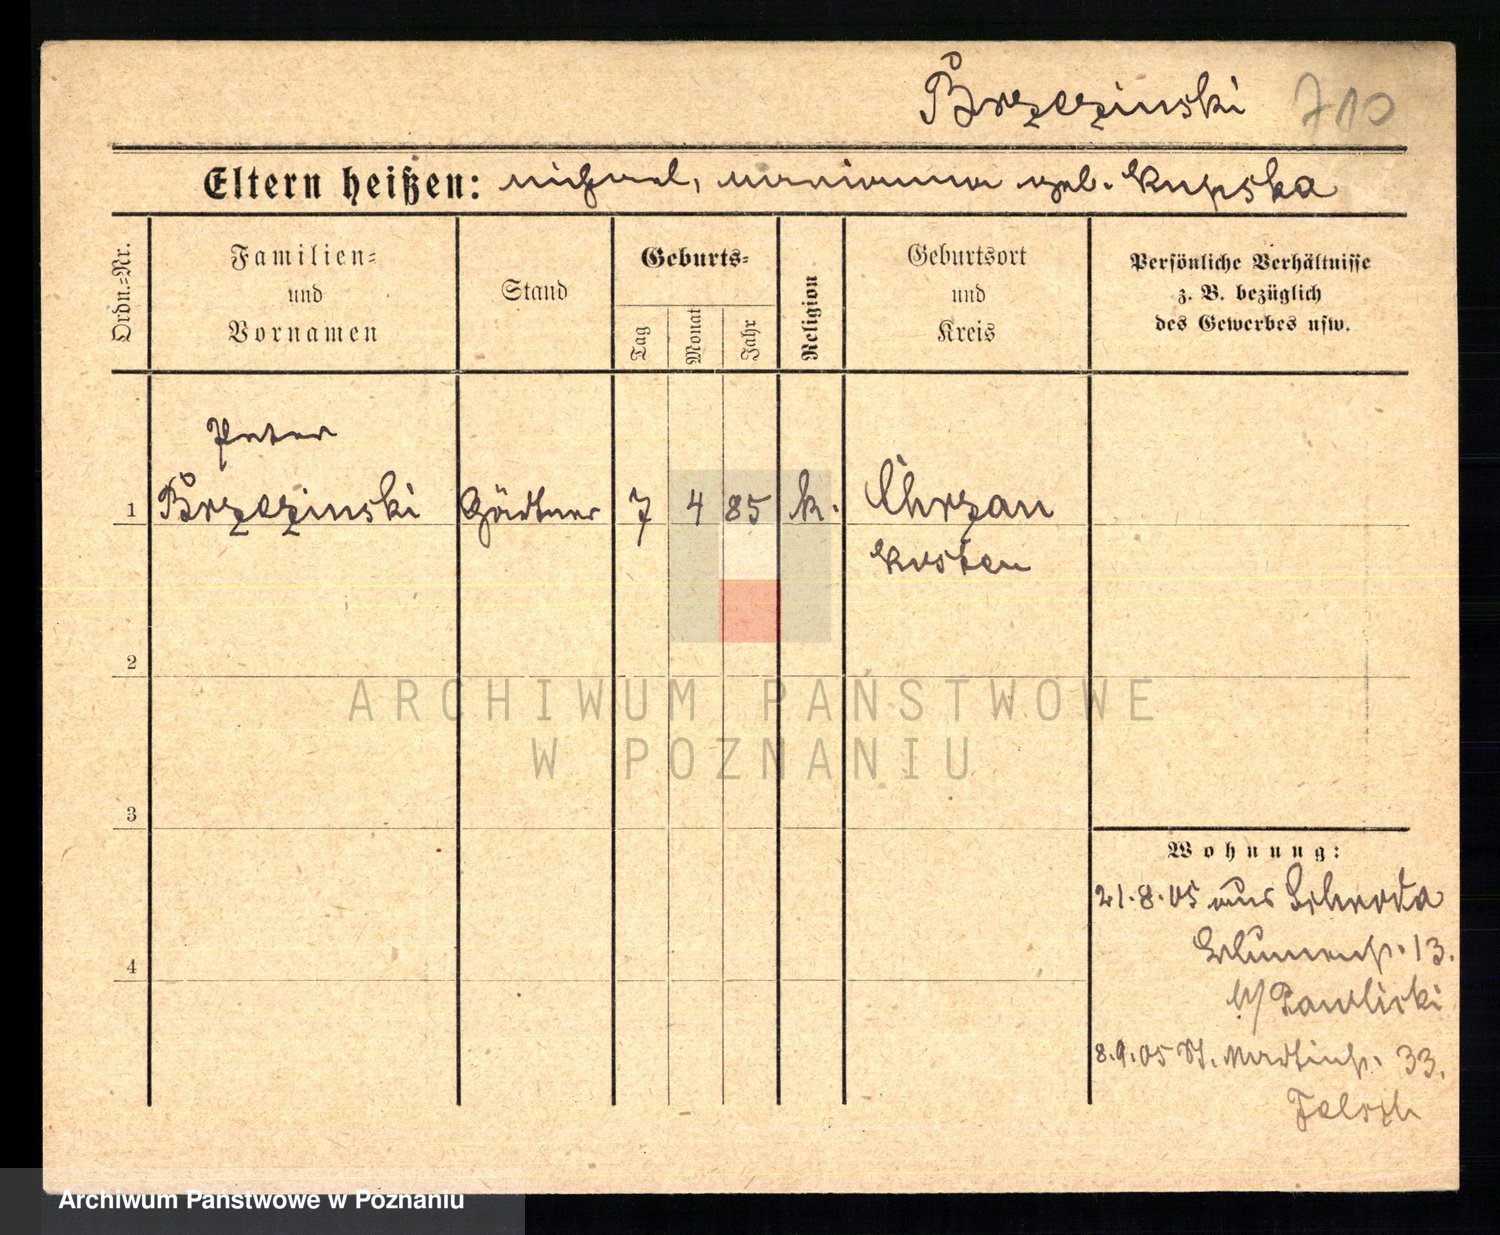 Brzezinski 710
Eltern heißen: Michael, Marianna geb. Kupska
Ordn.-Nr.
Familien-
und
Vornamen
Stand
Geburts-
Tag
Monat
Jahr
Religion
Geburtsort
und
Kreis
Persönliche Verhältnisse
z. B. bezüglich
des Gewerbes usw.
Peter
1 Brzezinski Gärtner 7 4 85 k. Chrzan
Kosten
2
ARCHIWUM PAŃSTWOWE
W POZNANIU
3
Wohnung:
21.8.05 aus Schroda
Blumenstr. 13.
b/ Pawlicki
4
8.9.05 St. Martinstr. 33.
Archiwum Państwowe w Poznaniu